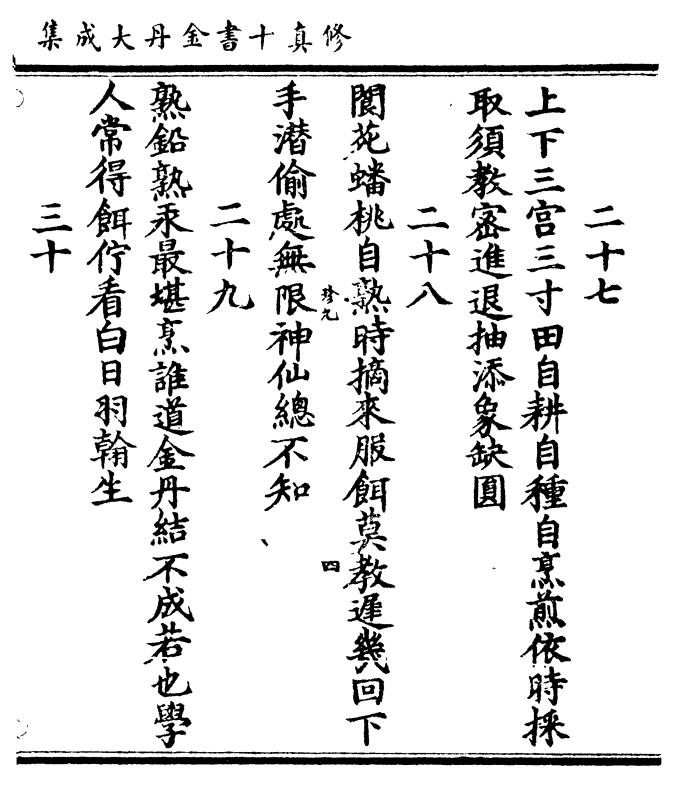 修真十書金丹大成集
二十七
上下三宮三寸田自耕自種自烹煎依時採
取須教密進退抽添象缺圓
二十八
閬苑蟠桃自熟時摘來服餌莫教遲幾回下
手潛偷處無限神仙總不知
珍九
四
二十九
熟鉛熟汞最堪烹誰道金丹結不成若也學
人常得餌佇看白日羽翰生
三十